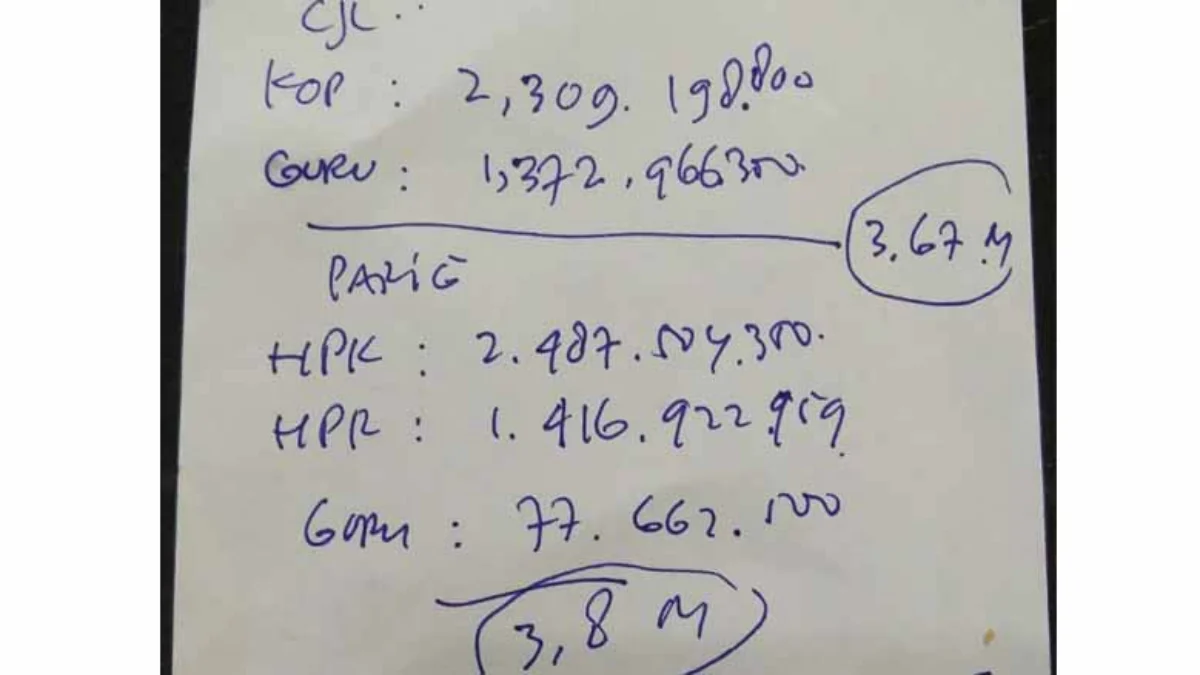 CJL :
KOP : 2,309. 198.800
GURU : 1,372.966300.
3.67 M
PARIG
HPK : 2.487.504.300.
HPR : 1.416.922.959
GURU : 77.662.500
3,8 M